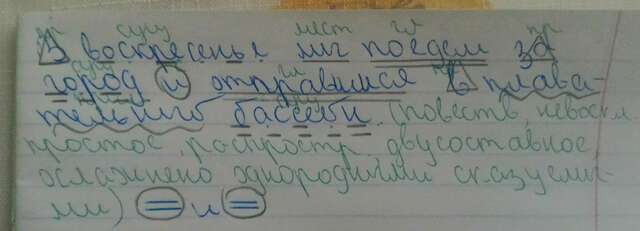 пр сущ мест гл пр
В воскресенье мы поедем за
сущ гл пр
город и отправимся в плава-
сущ
тельный бассейн. (повеств., невоскл.
простое, распростр, двусоставное
осложнено однородными сказуемы-
ми) и